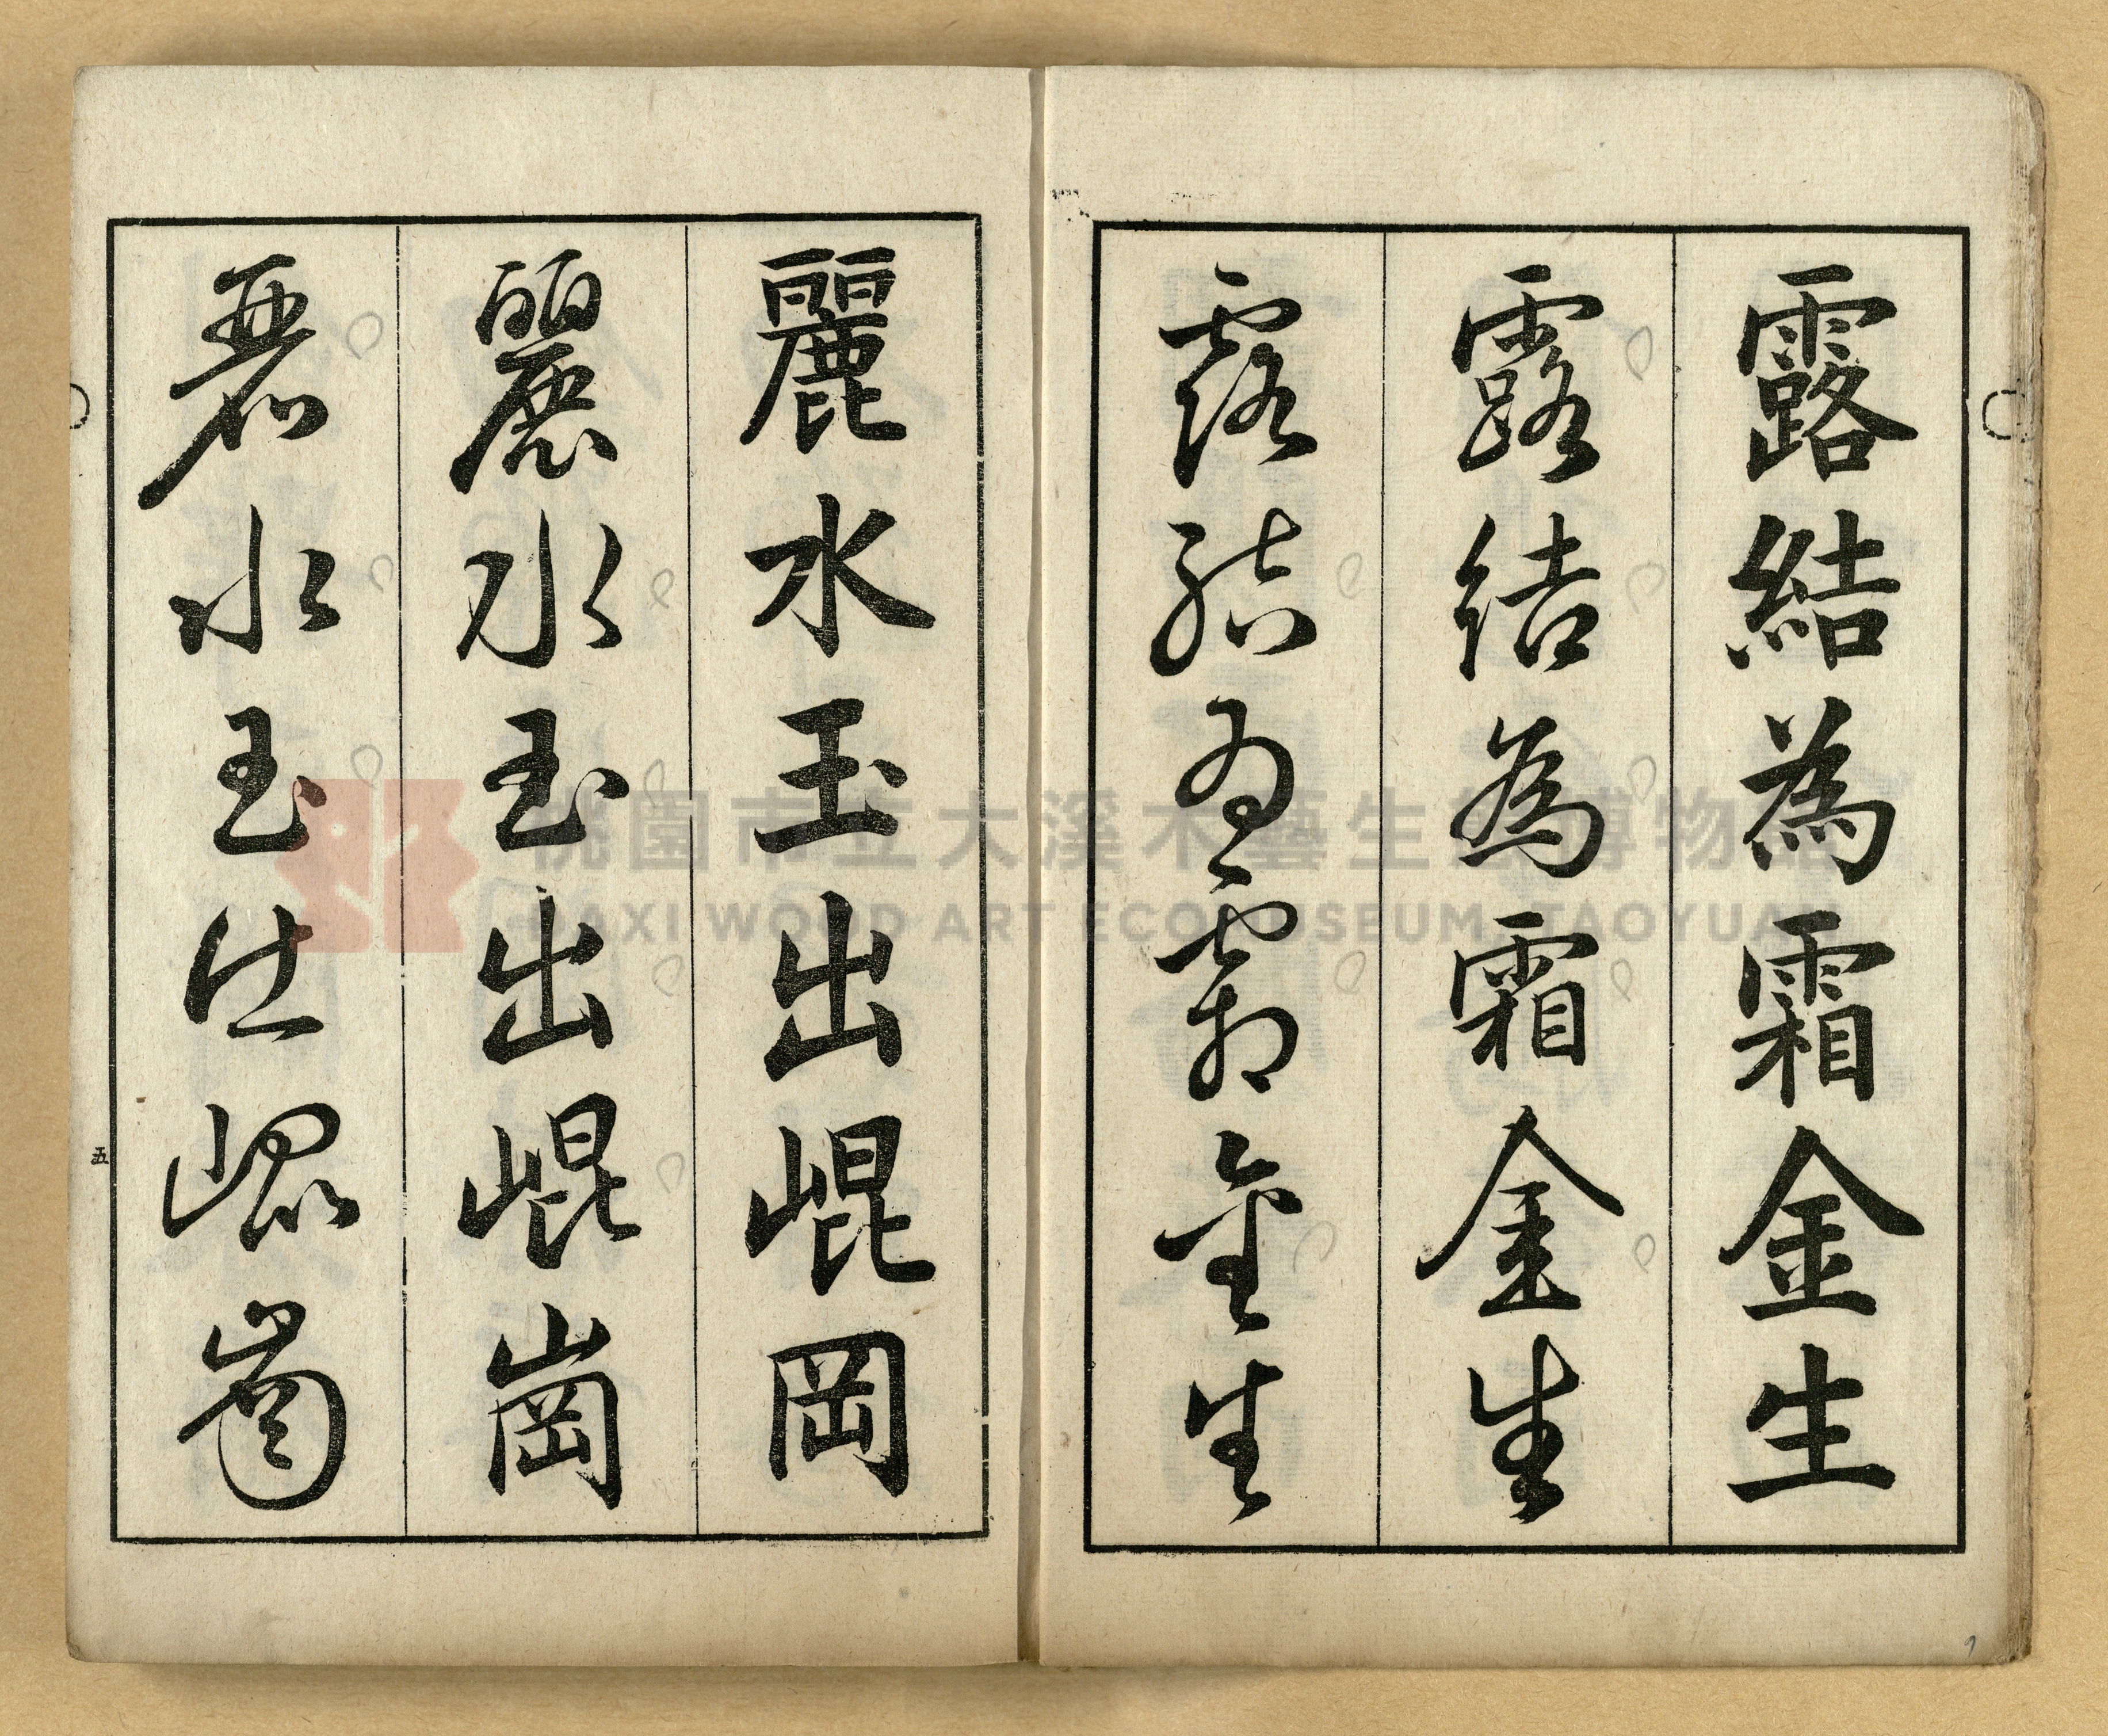 露結為霜金生
露結為霜金生
露結為霜金生
麗水玉出崐岡
麗水玉出崐崗
麗水玉出崐崗
五
桃園市立大溪木藝生態博物館
DAXI WOOD ART ECOMUSEUM, TAOYUAN